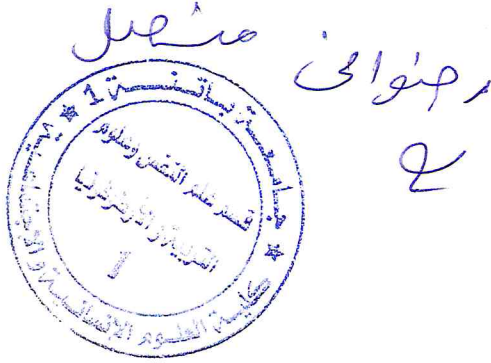 رضواني منصل
جامعة باتنة 1
قسم علم النفس وعلوم
التربية و الأرطوفونيا
1
كلية العلوم الإنسانية و الإجتماعية